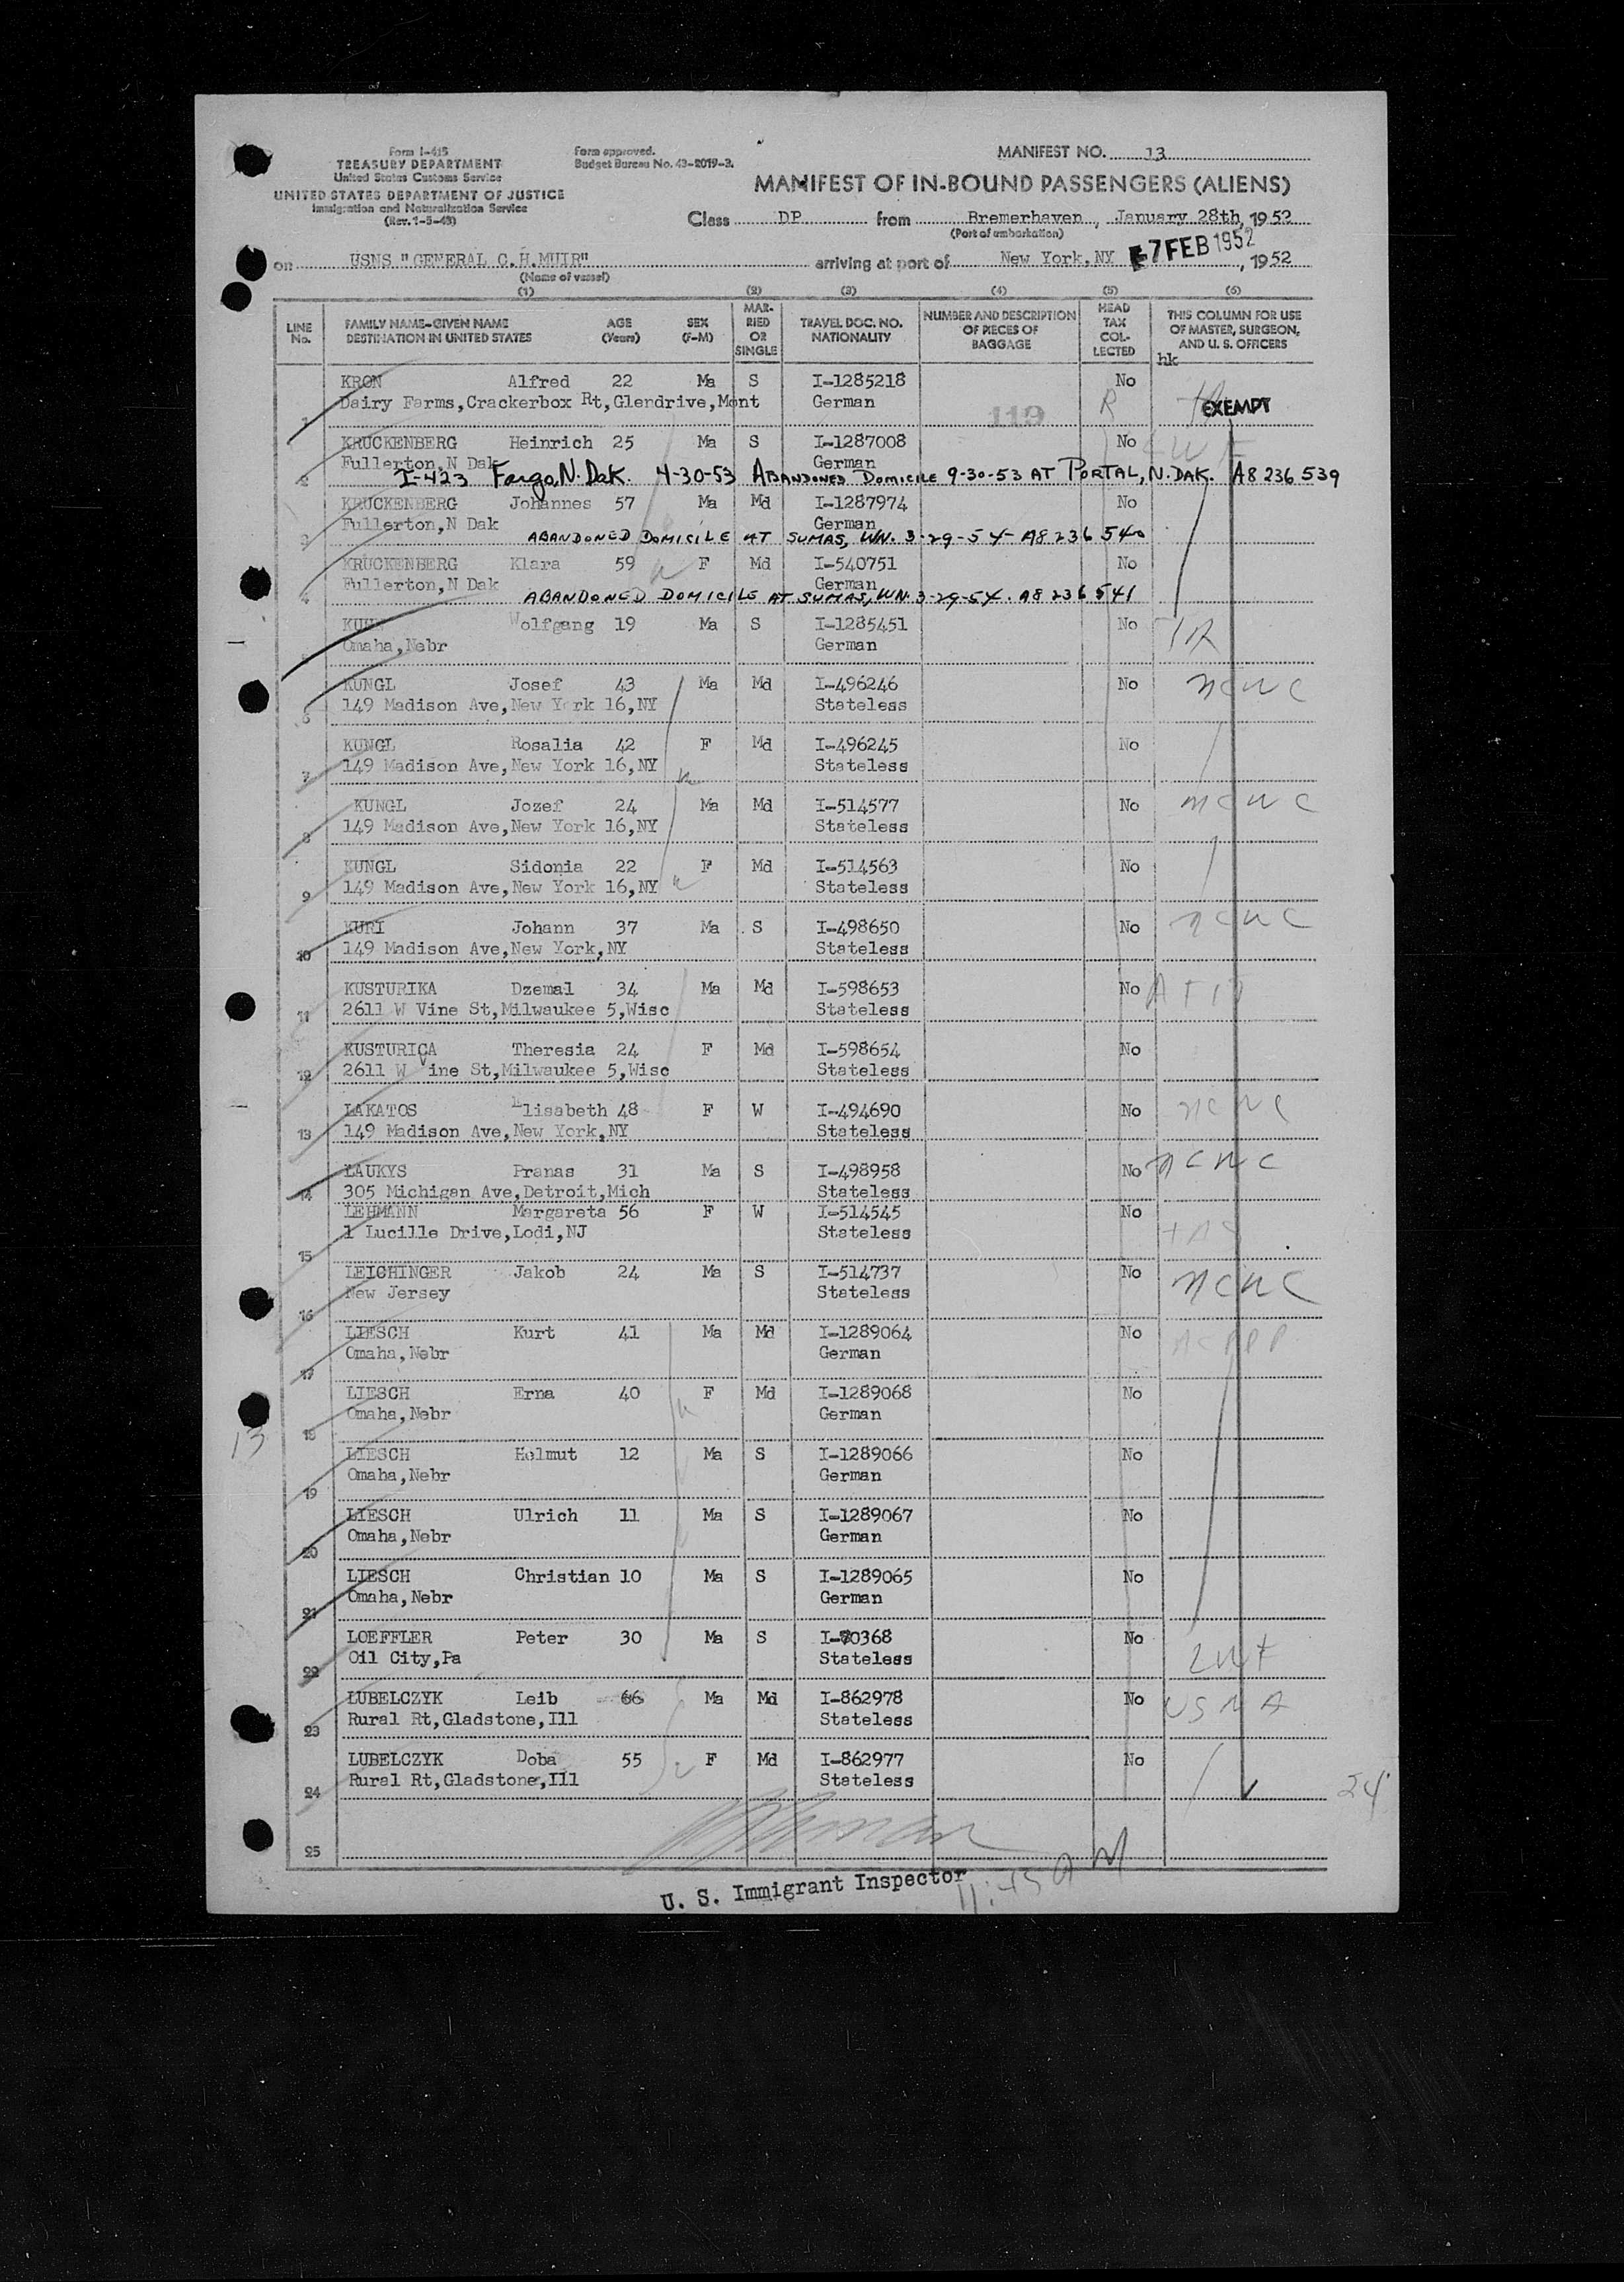 Form I-415
TREASURY DEPARTMENT
United States Customs Service
UNITED STATES DEPARTMENT OF JUSTICE
Immigration and Naturalization Service
(Rev. 1-5-49)
Form approved.
Budget Bureau No. 43-R019-3.
MANIFEST NO. 13
MANIFEST OF IN-BOUND PASSENGERS (ALIENS)
Class DP from Bremerhaven, January 28th, 1952
(Port of embarkation)
on USNS "GENERAL C.H.MUIR" arriving at port of New York, NY 7 FEB 1952, 1952
(Name of vessel)
(1) (2) (3) (4) (5) (6)
LINE No. FAMILY NAME-GIVEN NAME DESTINATION IN UNITED STATES AGE (Years) SEX (F-M) MARRIED OR SINGLE TRAVEL DOC. NO. NATIONALITY NUMBER AND DESCRIPTION OF PIECES OF BAGGAGE HEAD TAX COLLECTED THIS COLUMN FOR USE OF MASTER, SURGEON, AND U. S. OFFICERS
hk
KRON Alfred 22 Ma S I-1285218 No
1 Dairy Farms,Crackerbox Rt,Glendrive,Mont German 119 R EXEMPT
KRUCKENBERG Heinrich 25 Ma S I-1287008 No
2 Fullerton,N Dak German
I-423 Fargo, N. Dak. 4-30-53 ABANDONED DOMICILE 9-30-53 AT PORTAL, N. DAK. A8 236 539
KRUCKENBERG Johannes 57 Ma Md I-1287974 No
3 Fullerton,N Dak German
ABANDONED DOMICILE AT SUMAS, WN. 3-29-54 - A8 236 540
KRUCKENBERG Klara 59 F Md I-540751 No
4 Fullerton,N Dak German
ABANDONED DOMICILE AT SUMAS, WN. 3-29-54. A8 236 541
Wolfgang 19 Ma S I-1285451 No
5 Omaha,Nebr German
KUNGL Josef 43 Ma Md I-496246 No NCWC
6 149 Madison Ave,New York 16,NY Stateless
KUNGL Rosalia 42 F Md I-496245 No
7 149 Madison Ave,New York 16,NY Stateless
KUNGL Jozef 24 Ma Md I-514577 No NCWC
8 149 Madison Ave,New York 16,NY Stateless
KUNGL Sidonia 22 F Md I-514563 No
9 149 Madison Ave,New York 16,NY Stateless
KURI Johann 37 Ma S I-498650 No NCWC
10 149 Madison Ave,New York,NY Stateless
KUSTURIKA Dzemal 34 Ma Md I-598653 No
11 2611 W Vine St,Milwaukee 5,Wisc Stateless
KUSTURICA Theresia 24 F Md I-598654 No
12 2611 W Vine St,Milwaukee 5,Wisc Stateless
LAKATOS Elisabeth 48 F W I-494690 No NCWC
13 149 Madison Ave,New York,NY Stateless
LAUKYS Pranas 31 Ma S I-498958 No NCWC
14 305 Michigan Ave,Detroit,Mich Stateless
LEHMANN Margareta 56 F W I-514545 No
15 1 Lucille Drive,Lodi,NJ Stateless
LEICHINGER Jakob 24 Ma S I-514737 No NCWC
16 New Jersey Stateless
LIESCH Kurt 41 Ma Md I-1289064 No
17 Omaha,Nebr German
LIESCH Erna 40 F Md I-1289068 No
18 Omaha,Nebr German
LIESCH Helmut 12 Ma S I-1289066 No
19 Omaha,Nebr German
LIESCH Ulrich 11 Ma S I-1289067 No
20 Omaha,Nebr German
LIESCH Christian 10 Ma S I-1289065 No
21 Omaha,Nebr German
LOEFFLER Peter 30 Ma S I-70368 No LWF
22 Oil City,Pa Stateless
LUBELCZYK Leib 66 Ma Md I-862978 No USNA
23 Rural Rt,Gladstone,Ill Stateless
LUBELCZYK Doba 55 F Md I-862977 No
24 Rural Rt,Gladstone,Ill Stateless 24
25
13
U. S. Immigrant Inspector
11:45 AM